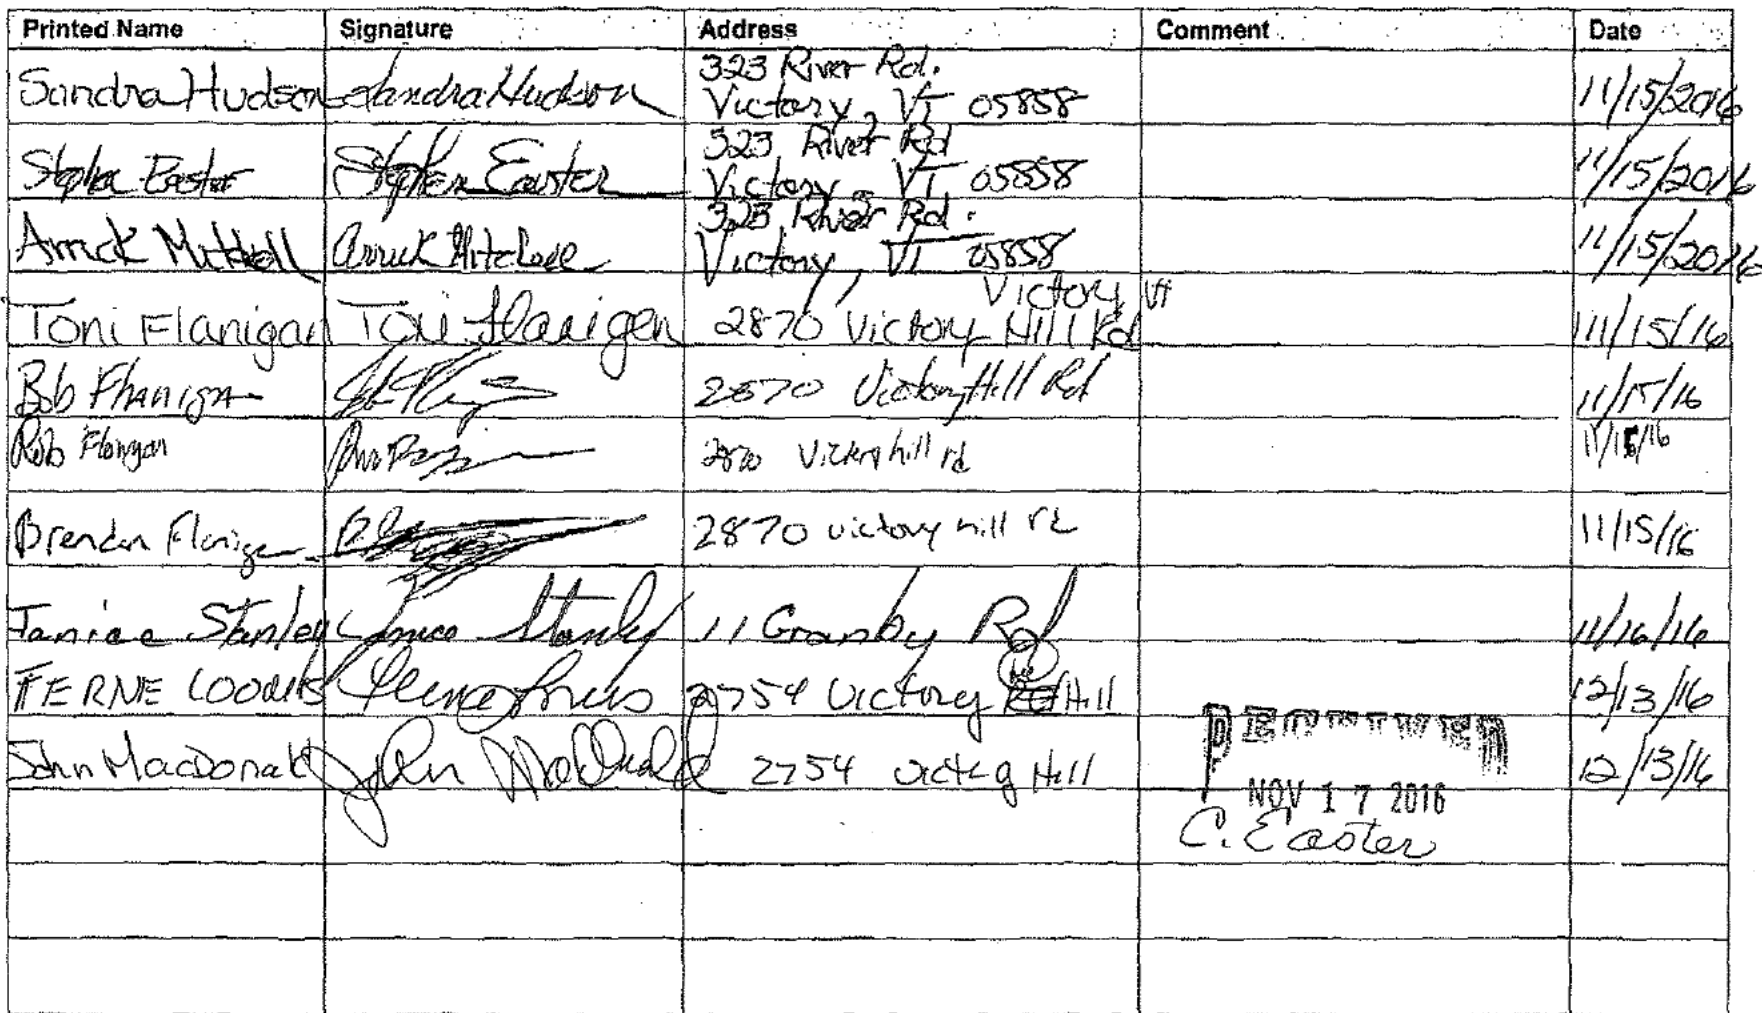 Printed Name Signature Address Comment Date
Sandra Hudson Sandra Hudson 323 River Rd. Victory, VT 05858 11/15/2016
Stephen Easter Stephen Easter 323 River Rd Victory, VT, 05858 11/15/2016
Arrick Mitchell Arrick Mitchell 323 River Rd. Victory, VT 05858 11/15/2016
Toni Flanigan Toni Flanigan 2870 Victory Hill Rd Victory, Vt 11/15/16
Bob Flanigan 2870 Victory Hill Rd 11/15/16
Rob Flanigan 2870 Victory hill rd 11/15/16
Brendan Flanigan 2870 victory hill rd 11/15/16
Janice Stanley Janice Stanley 11 Granby Rd 11/16/16
FERNE LOOMIS Ferne Loomis 2754 Victory Hill 12/13/16
John MacDonald John MacDonald 2754 Victory Hill 12/13/16
RECEIVED
NOV 17 2016
C. Easter